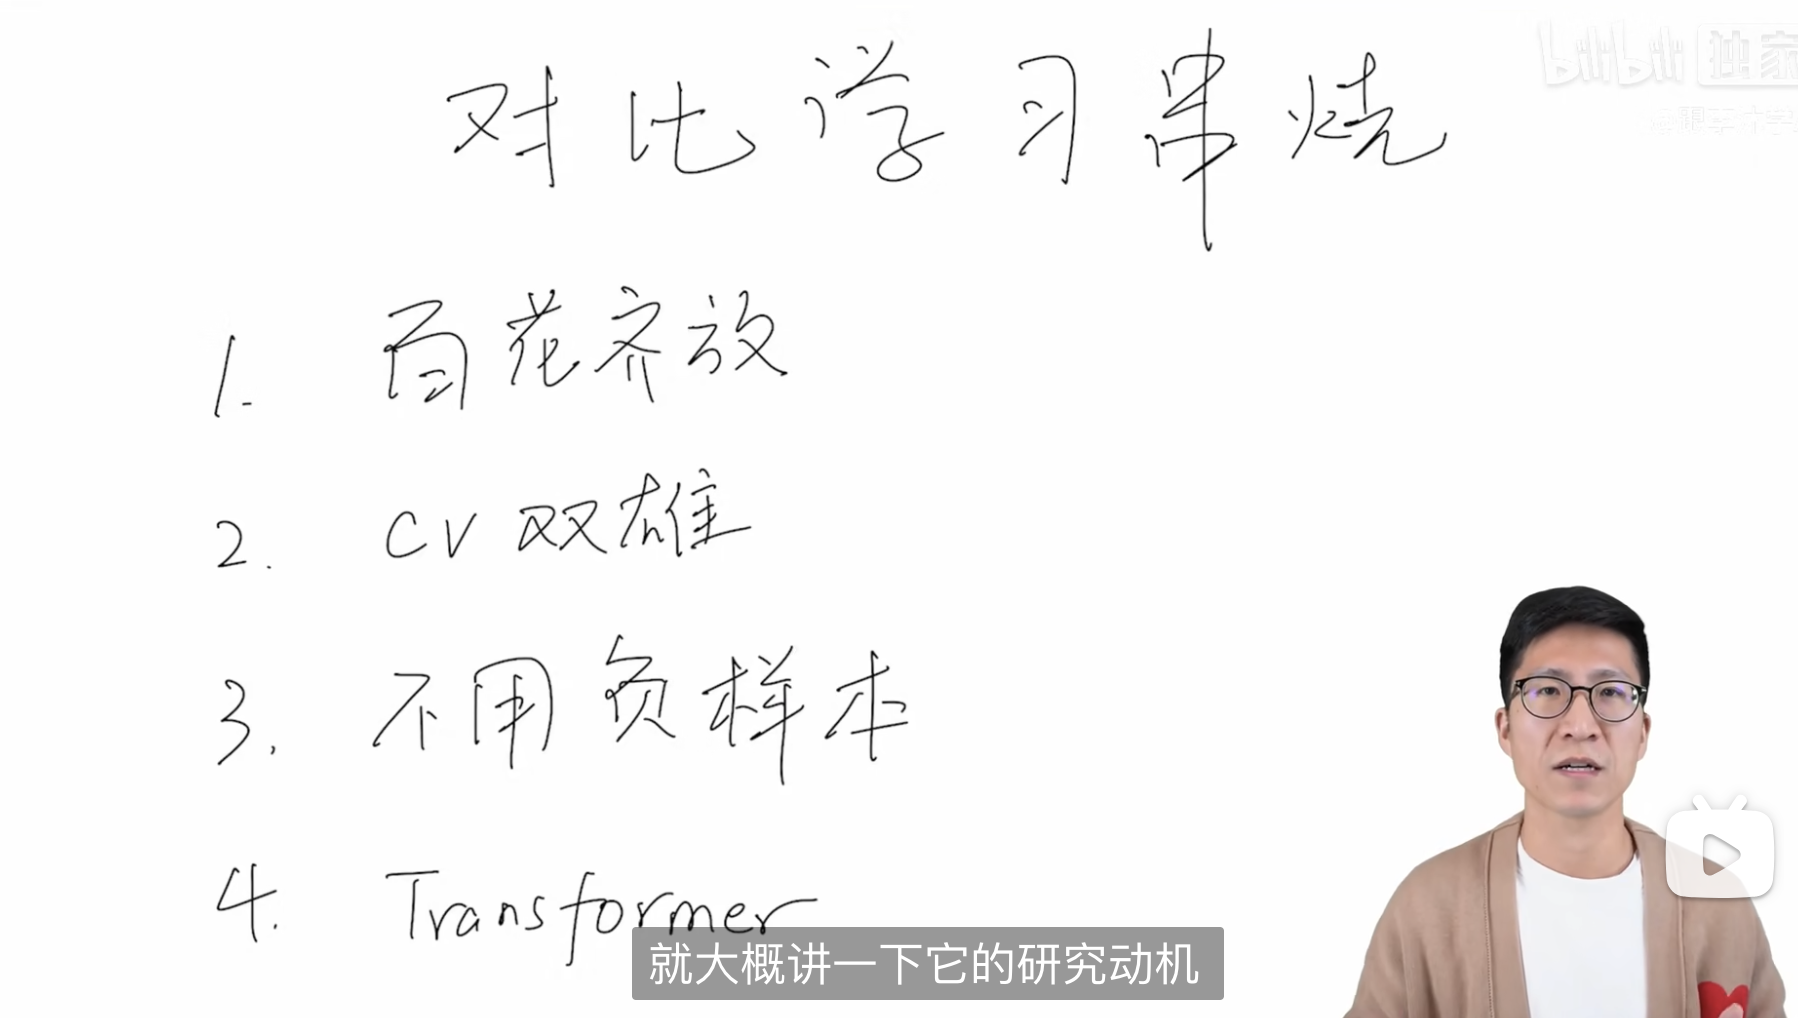 bilibili 独家
对比学习串烧
1. 百花齐放
2. CV双雄
3. 不用负样本
4. Transformer
就大概讲一下它的研究动机